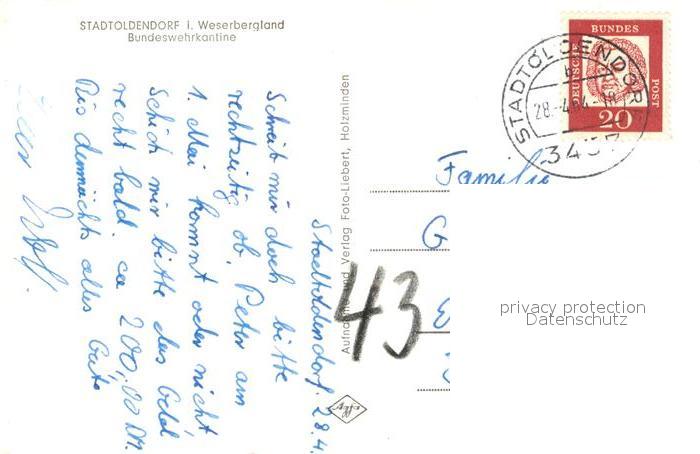 STADTOLDENDORF i. Weserbergland
Bundeswehrkantine
Stadtoldendorf, 28.4.
Schreib mir doch bitte
rechtzeitig ob Peter am
1. Mai kommt oder nicht,
Schick mir bitte das Geld
recht bald. ca 200,00 DM.
Bis demnächst alles Gute
Aufnahme und Verlag Foto-Liebert, Holzminden
Agfa
43
Familie
G
DEUTSCHE
BUNDES
POST
20
STADTOLDENDORF
b
28.-4.64-18
3457
privacy protection
Datenschutz